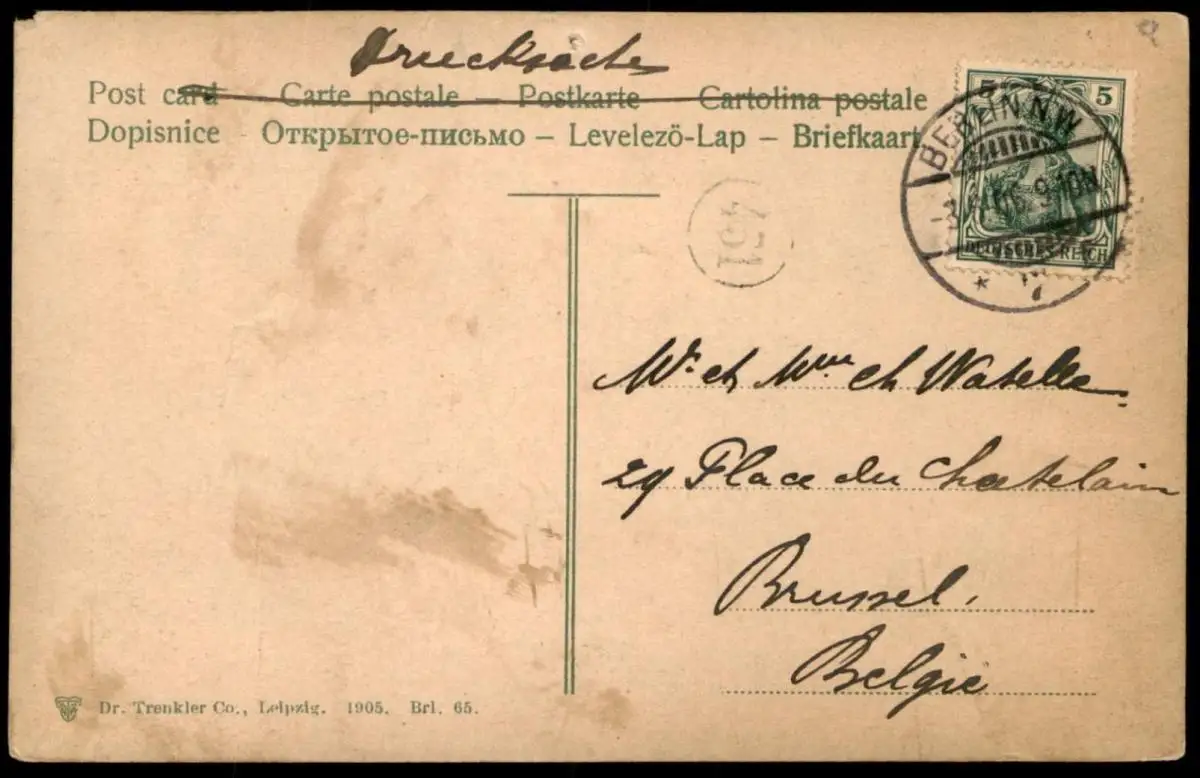 Drucksache
Post card – Carte postale – Postkarte – Cartolina postale
Dopisnice – Открытое-письмо – Levelezö-Lap – Briefkaart
5
BERLIN N.W.
9-10N
DEUTSCHES REICH
* 7
451
Mr. et Mme Ch Watelle
29 Place du Chatelain
Brussel.
Belgie
Dr. Trenkler Co., Leipzig. 1905. Brl. 65.